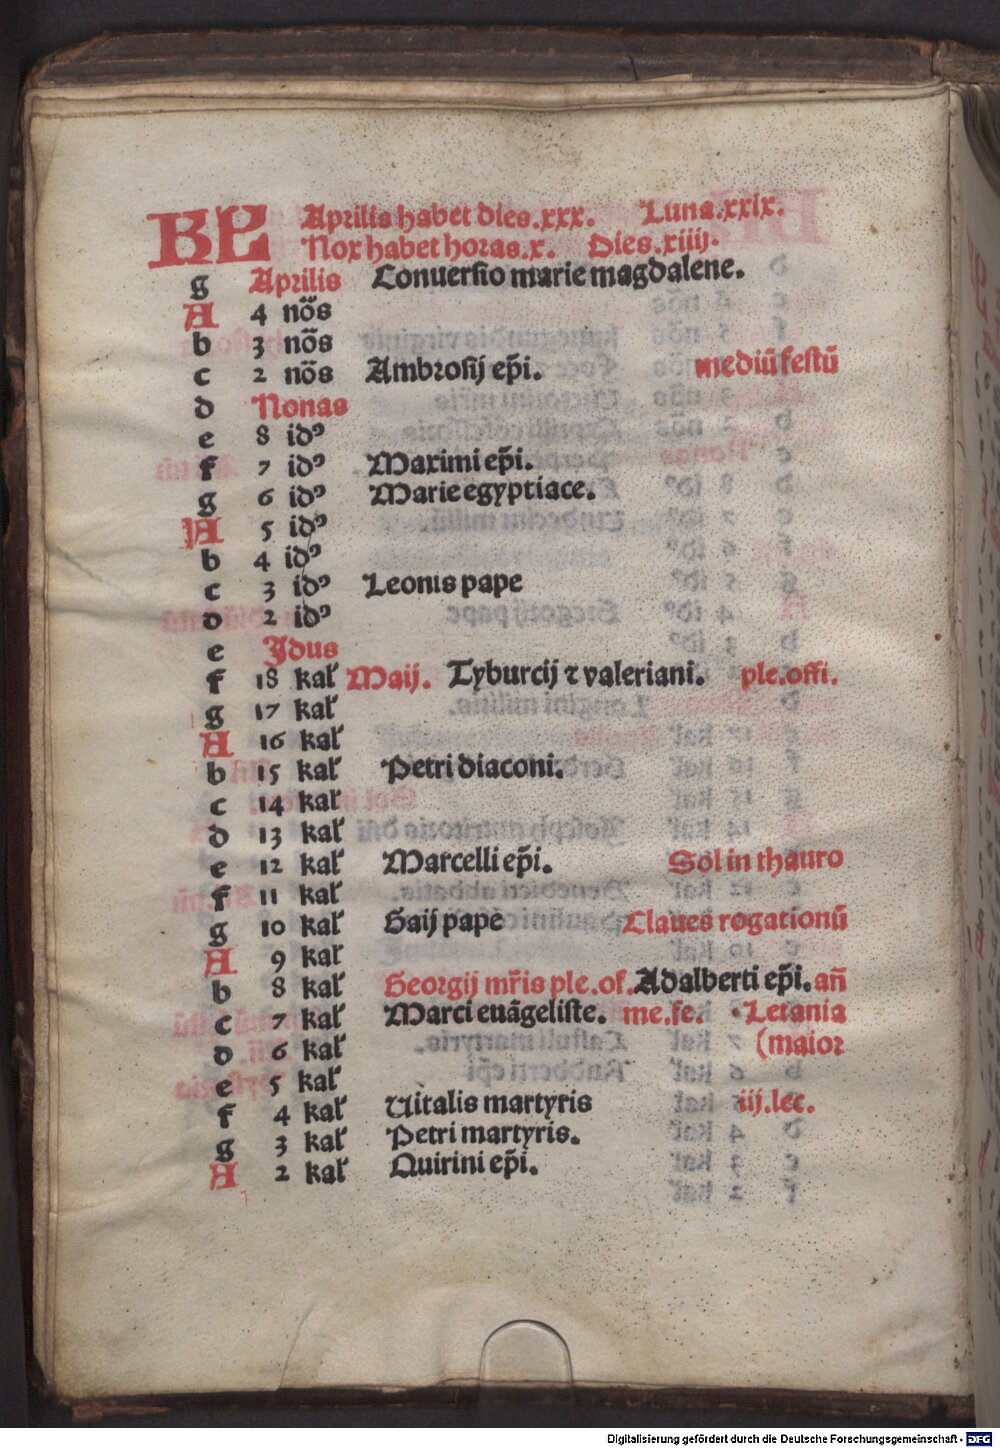 KL Aprilis habet dies.xxx. Luna.xxix.
Nox habet horas.x. Dies.xiiij.
g Aprilis Conuersio marie magdalene.
A 4 nõs
b 3 nõs
c 2 nõs Ambrosij ep̃i. mediũ festũ
d Nonas
e 8 idꝰ
f 7 idꝰ Maximi ep̃i.
g 6 idꝰ Marie egyptiace.
A 5 idꝰ
b 4 idꝰ
c 3 idꝰ Leonis pape
d 2 idꝰ
e Idus
f 18 kal' Maij. Tyburcij ⁊ valeriani. ple.offi.
g 17 kal'
A 16 kal'
b 15 kal' Petri diaconi.
c 14 kal'
d 13 kal'
e 12 kal' Marcelli ep̃i. Sol in thauro
f 11 kal'
g 10 kal' Gaij pape Claues rogationũ
A 9 kal'
b 8 kal' Georgij mr̃is ple.of. Adalberti ep̃i. añ
c 7 kal' Marci euãgeliste. me.fe. Letania
d 6 kal' (maior
e 5 kal'
f 4 kal' Uitalis martyris iij.lec.
g 3 kal' Petri martyris.
A 2 kal' Quirini ep̃i.
Digitalisierung gefördert durch die Deutsche Forschungsgemeinschaft - DFG